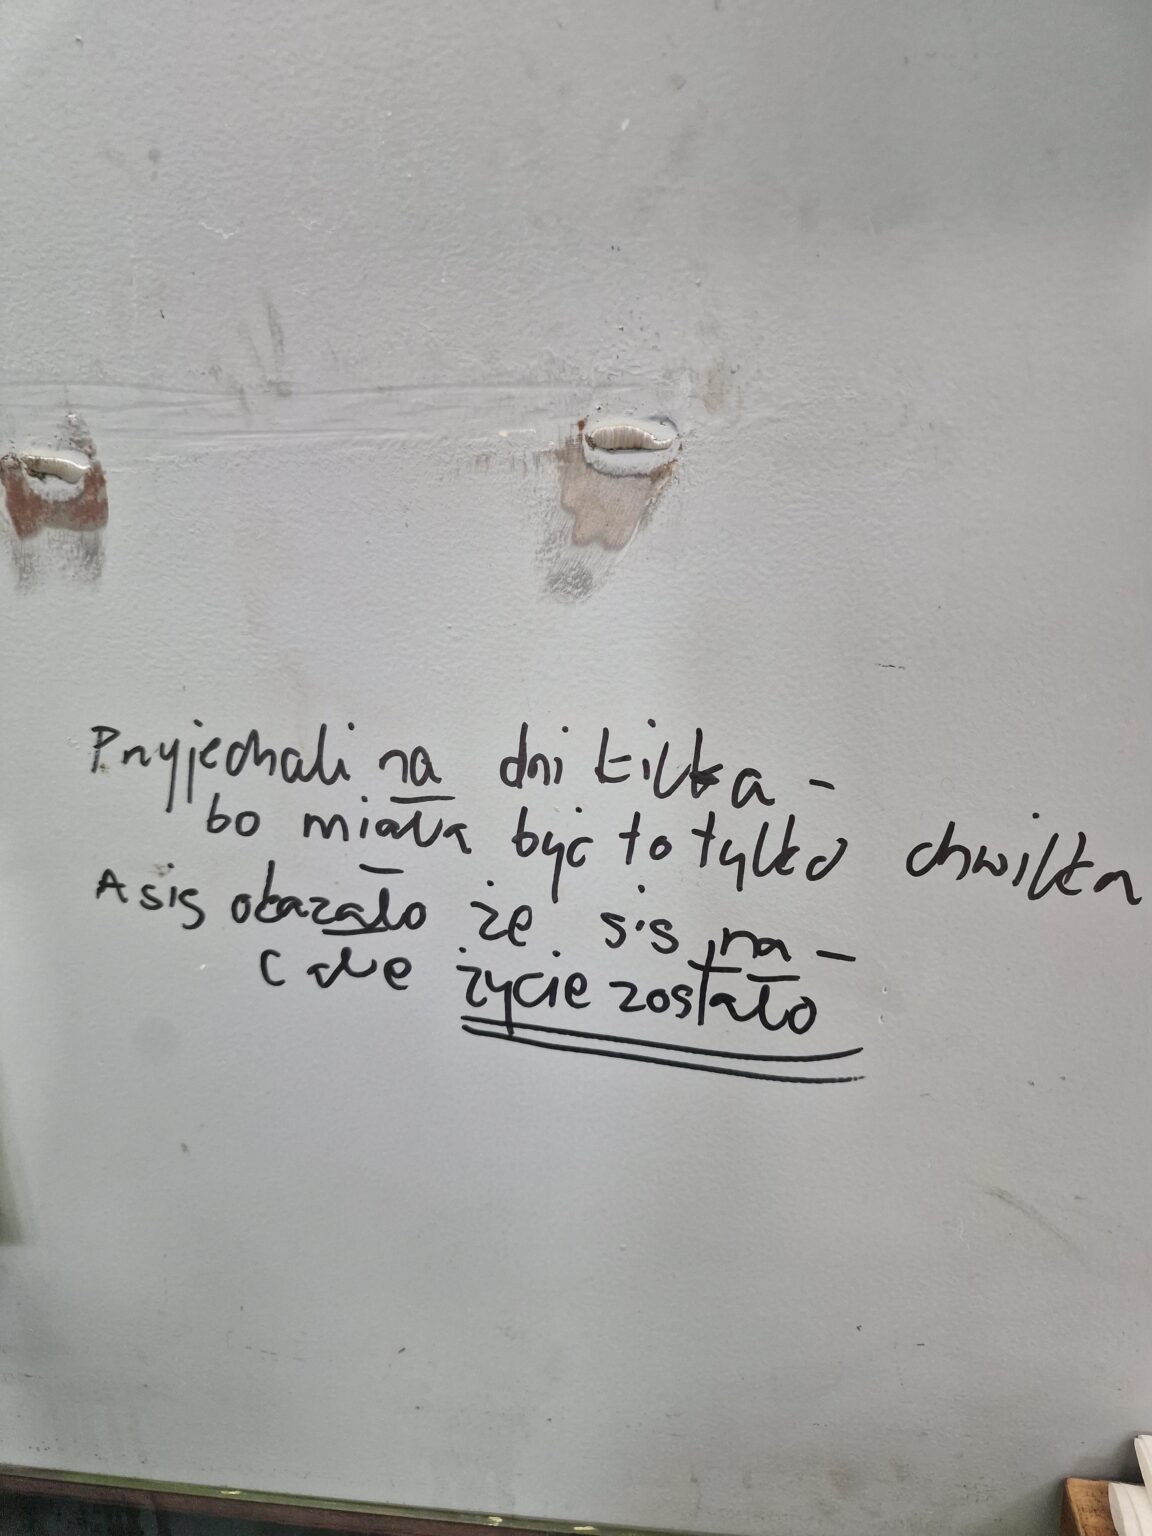 Przyjechali na dni kilka -
bo miała być to tylko chwilka
A się okazało że się na -
całe życie zostało